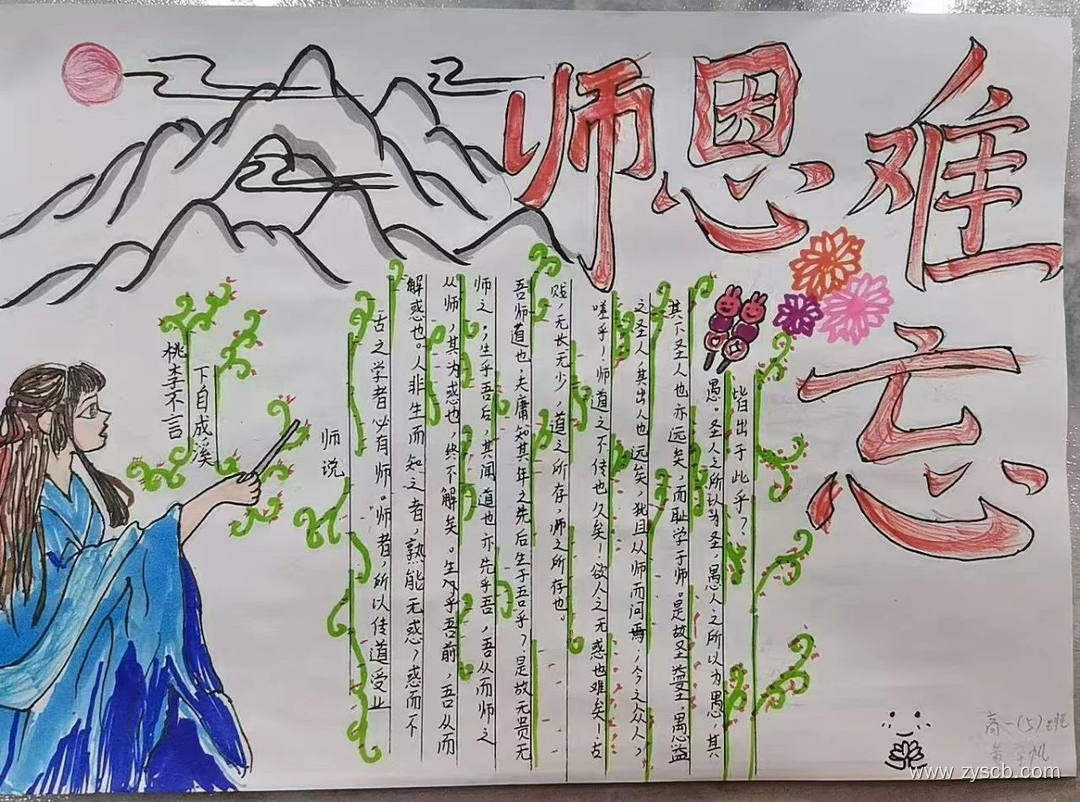 师恩难
忘
桃李不言
下自成溪
师说
古之学者必有师。师者,所以传道受业
解惑也。人非生而知之者,熟能无惑,惑而不
从师,其为惑也,终不解矣。生乎吾前,吾从而
师之;生乎吾后,其闻道也亦先乎吾,吾从而师之
吾师道也,夫庸知其年之先后生于吾乎?是故无贵无
贱,无长无少,道之所存,师之所存也。
嗟乎!师道之不传也久矣!欲人之无惑也难矣!古
之圣人其出人也远矣,犹且从师而问焉,今之众人,
其下圣人也亦远矣,而耻学于师。是故圣益圣,愚益
愚。圣人之所以为圣,愚人之所以为愚,其
皆出于此乎?
高一(5)班
www.zyscb.com